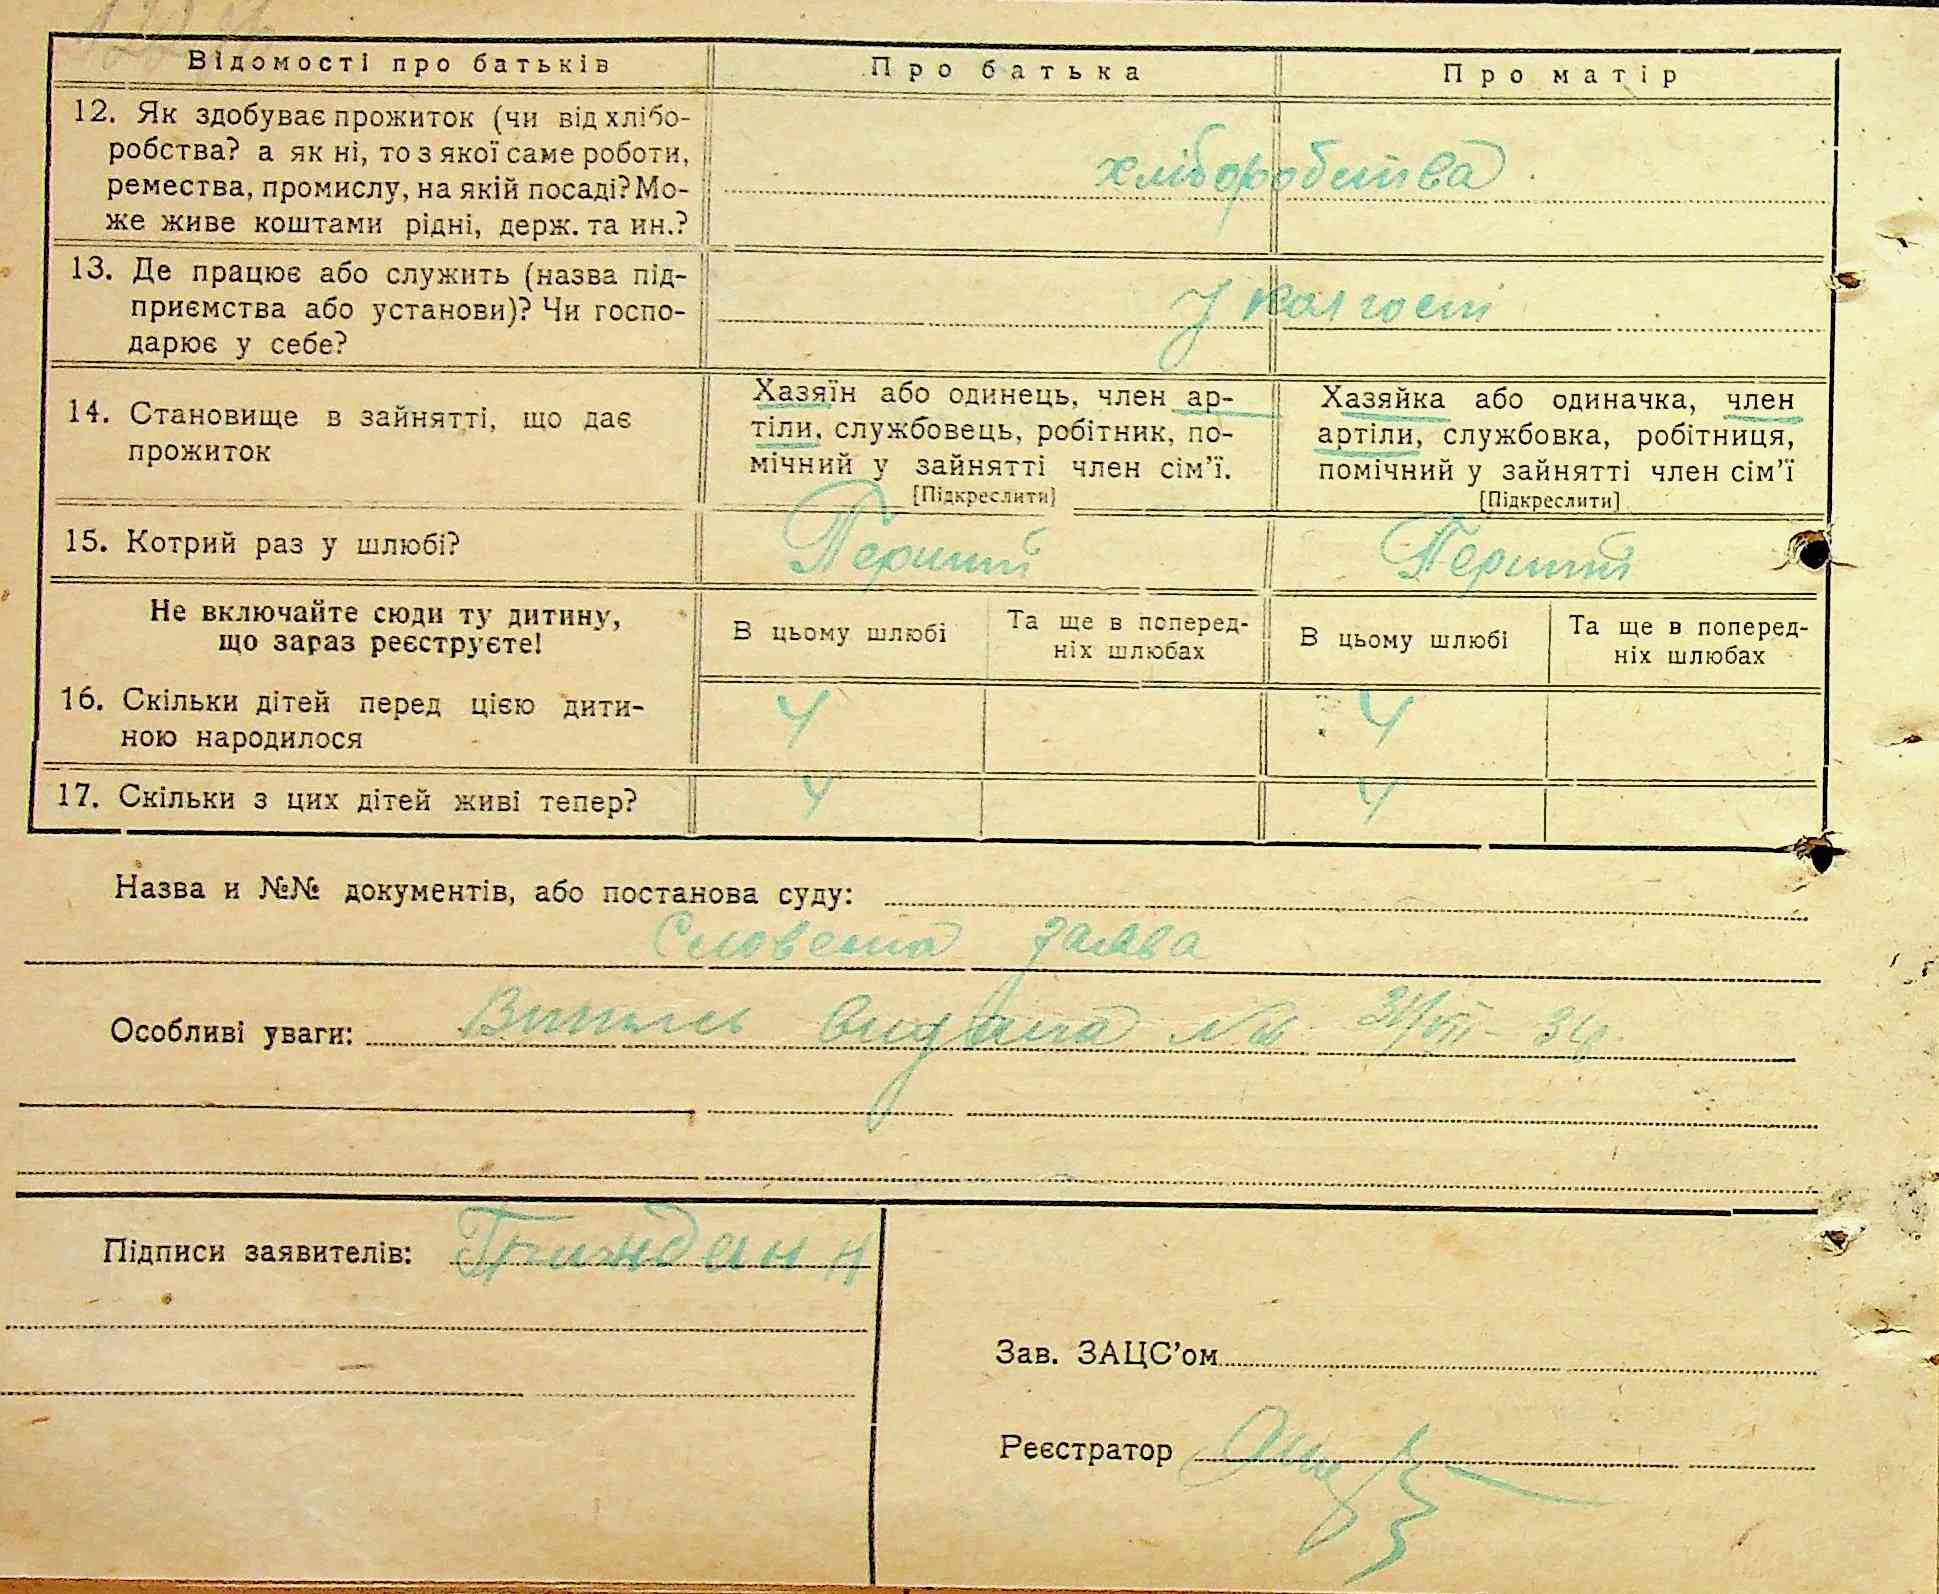 Відомості про батьків Про батька Про матір
12. Як здобуває прожиток (чи від хлібо-
робства? а як ні, то з якої саме роботи,
ремества, промислу, на якій посаді? Мо-
же живе коштами рідні, держ. та ин.?
хліборобства
13. Де працює або служить (назва під-
приємства або установи)? Чи госпо-
дарює у себе?
У колгоспі
14. Становище в зайнятті, що дає
прожиток
Хазяїн або одинець, член ар-
тіли, службовець, робітник, по-
мічний у зайнятті член сім’ї.
[Підкреслити]
Хазяйка або одиначка, член
артіли, службовка, робітниця,
помічний у зайнятті член сім’ї
[Підкреслити]
15. Котрий раз у шлюбі? Перший Перший
Не включайте сюди ту дитину,
що зараз реєструєте!
В цьому шлюбі
Та ще в поперед-
ніх шлюбах
В цьому шлюбі
Та ще в поперед-
ніх шлюбах
16. Скільки дітей перед цією дити-
ною народилося
4 4
17. Скільки з цих дітей живі тепер? 4 4
Назва и №№ документів, або постанова суду:
Словесна заява
Особливі уваги: видана 34
Підписи заявителів:
Зав. ЗАЦС’ом
Реєстратор